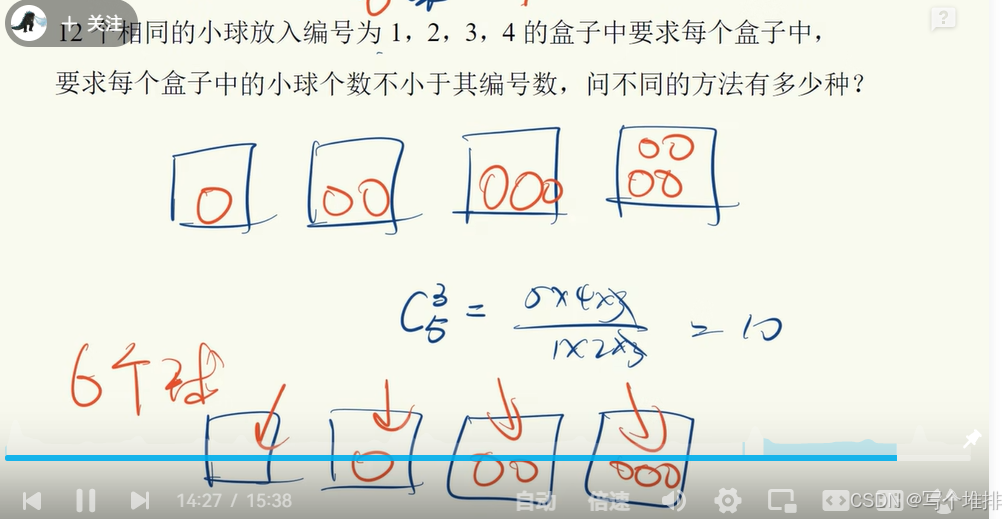 + 关注
12 个相同的小球放入编号为 1，2，3，4 的盒子中要求每个盒子中，
要求每个盒子中的小球个数不小于其编号数，问不同的方法有多少种？
C₅³ = 5×4×3 / 1×2×3 = 10
6个球
14:27 / 15:38
自动 倍速
CSDN @写个堆排